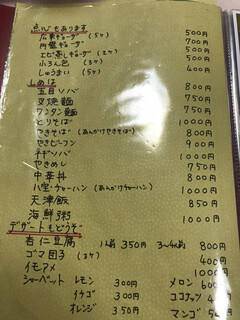 点心もあります
広東ギョーザ (5ケ) 500円
円盤ギョーザ 700円
エビ蒸しギョーザ (2ケ) 500円
小ろん包 (3ケ) 500円
しゅうまい (5ケ) 400円
しめは
五目ソバ 800円
叉焼麺 750円
ワンタン麺 750円
とりそば 1000円
やきそば (あんかけやきそば) 800円
やきビーフン 900円
ネギソバ 1000円
やきめし 750円
中華丼 800円
八宝チャーハン (あんかけチャーハン) 1000円
天津飯 850円
海鮮粥 1000円
デザートもどうぞ
杏仁豆腐 1人前 350円 3〜4人前 800
ゴマ団子 (3ケ) 400
イモアメ 1000
シャーベット レモン 300円 メロン 600
イチゴ 300円 ココナッツ 400
オレンジ 350円 マンゴ 50